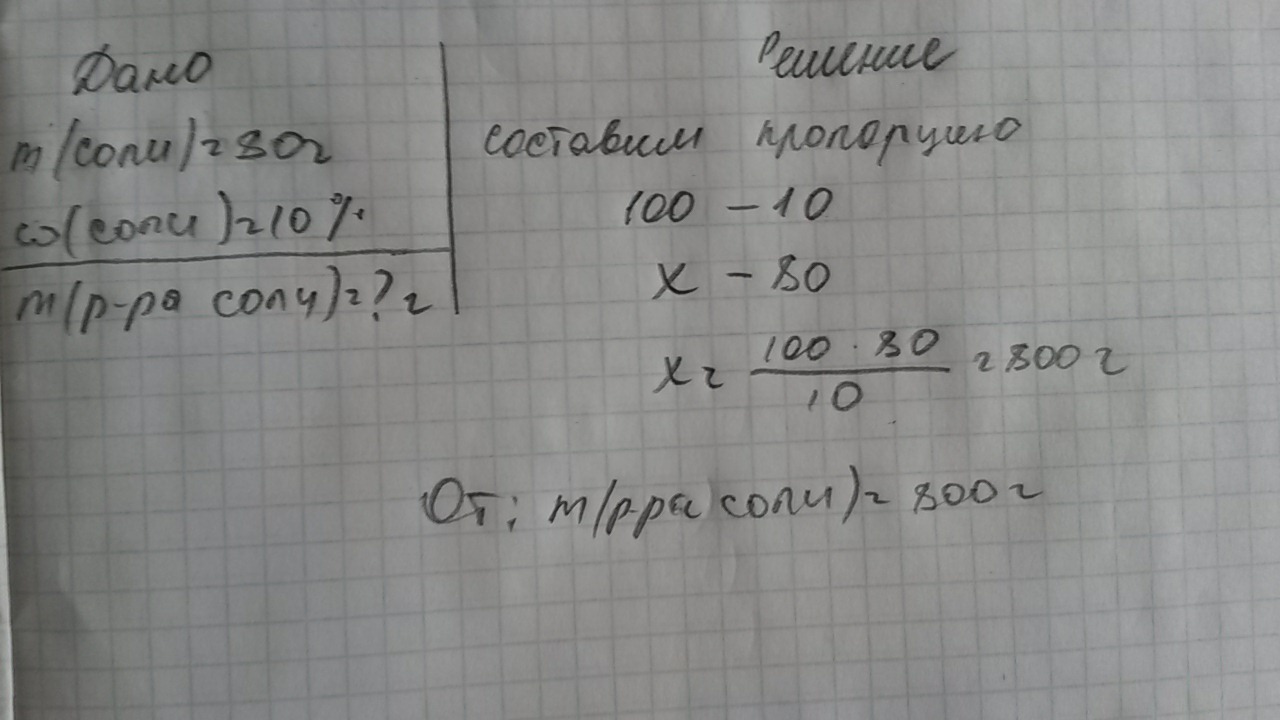 Дано
m(соли)=80г
ω(соли)=10%
m(р-ра соли)=? г
Решение
составим пропорцию
100 – 10
x – 80
x = 100 · 80 / 10 = 800 г
От: m(р-ра соли)= 800 г